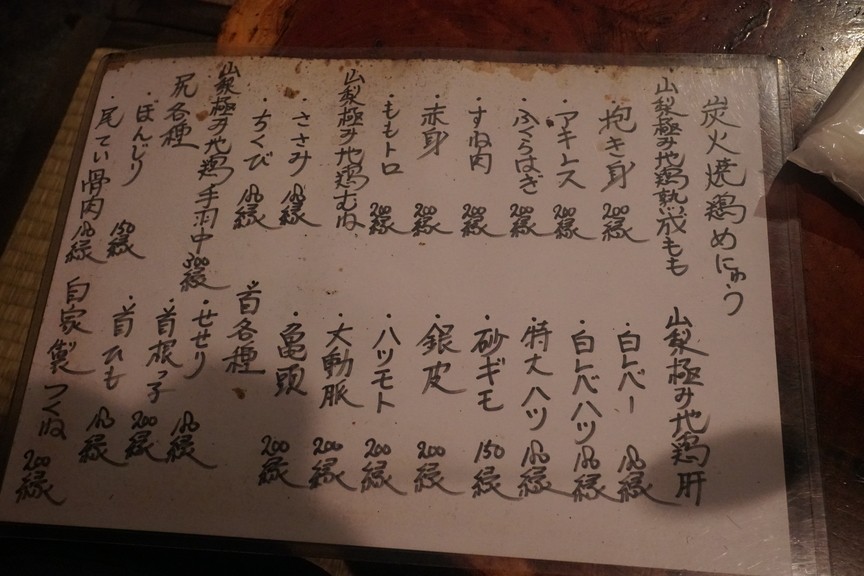 炭火焼鶏めにゅう
山梨極み地鶏熟成もも
・抱き身 200縁
・アキレス 200縁
・ふくらはぎ 200縁
・すね肉 200縁
・赤身 200縁
・ももトロ 200縁
山梨極み地鶏むね
・ささみ 縁
・ちくび 縁
山梨極み地鶏手羽中 300縁
尻各種
・ぼんじり 150縁
・尾てい骨肉 縁
山梨極み地鶏肝
・白レバー 縁
・白レバハツ 縁
・特大ハツ 縁
・砂ギモ 150縁
・銀皮 200縁
・ハツモト 200縁
・大動脈 200縁
・亀頭 200縁
首各種
・せせり 縁
・首根っ子 200縁
・首ひも 縁
自家製つくね 200縁